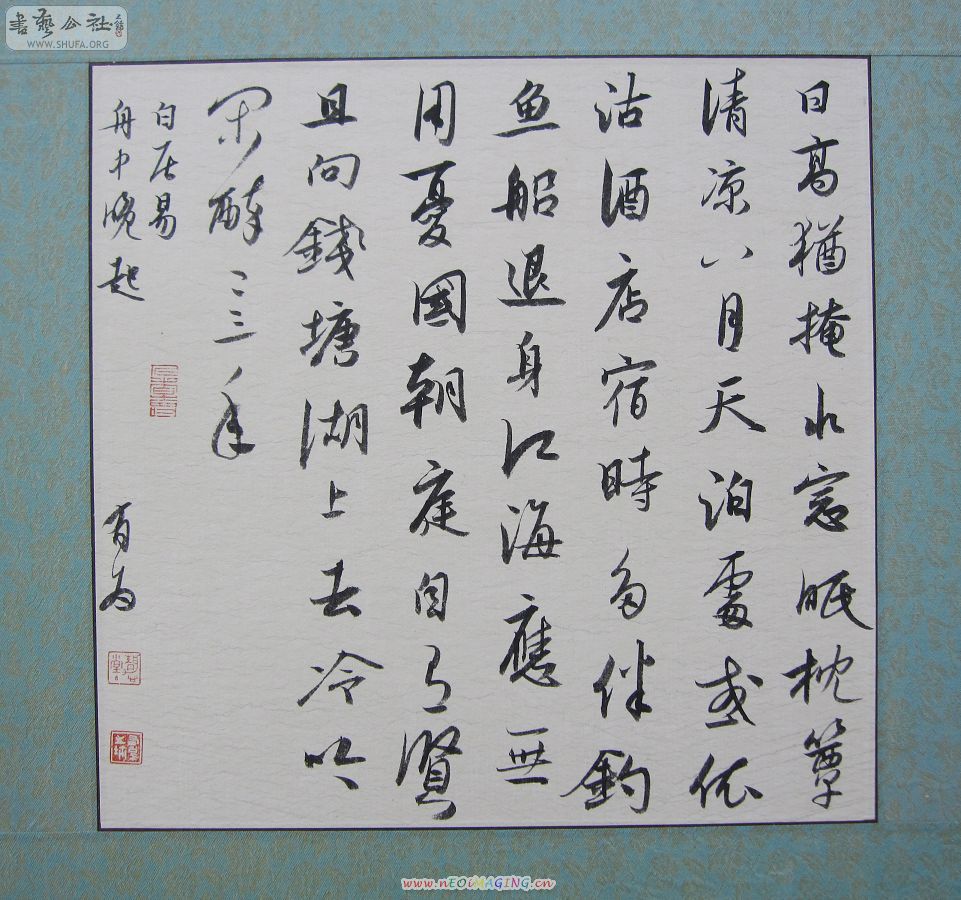 書藝公社
WWW.SHUFA.ORG
日高猶掩水窓眠枕簟
清凉八月天泊處或依
沽酒店宿時多伴釣
鱼船退身江海應無
用憂國朝庭自有賢
且向錢塘湖上去冷吟
閑醉二三年
白居易
舟中晚起
www.nEOiMAGING.cn